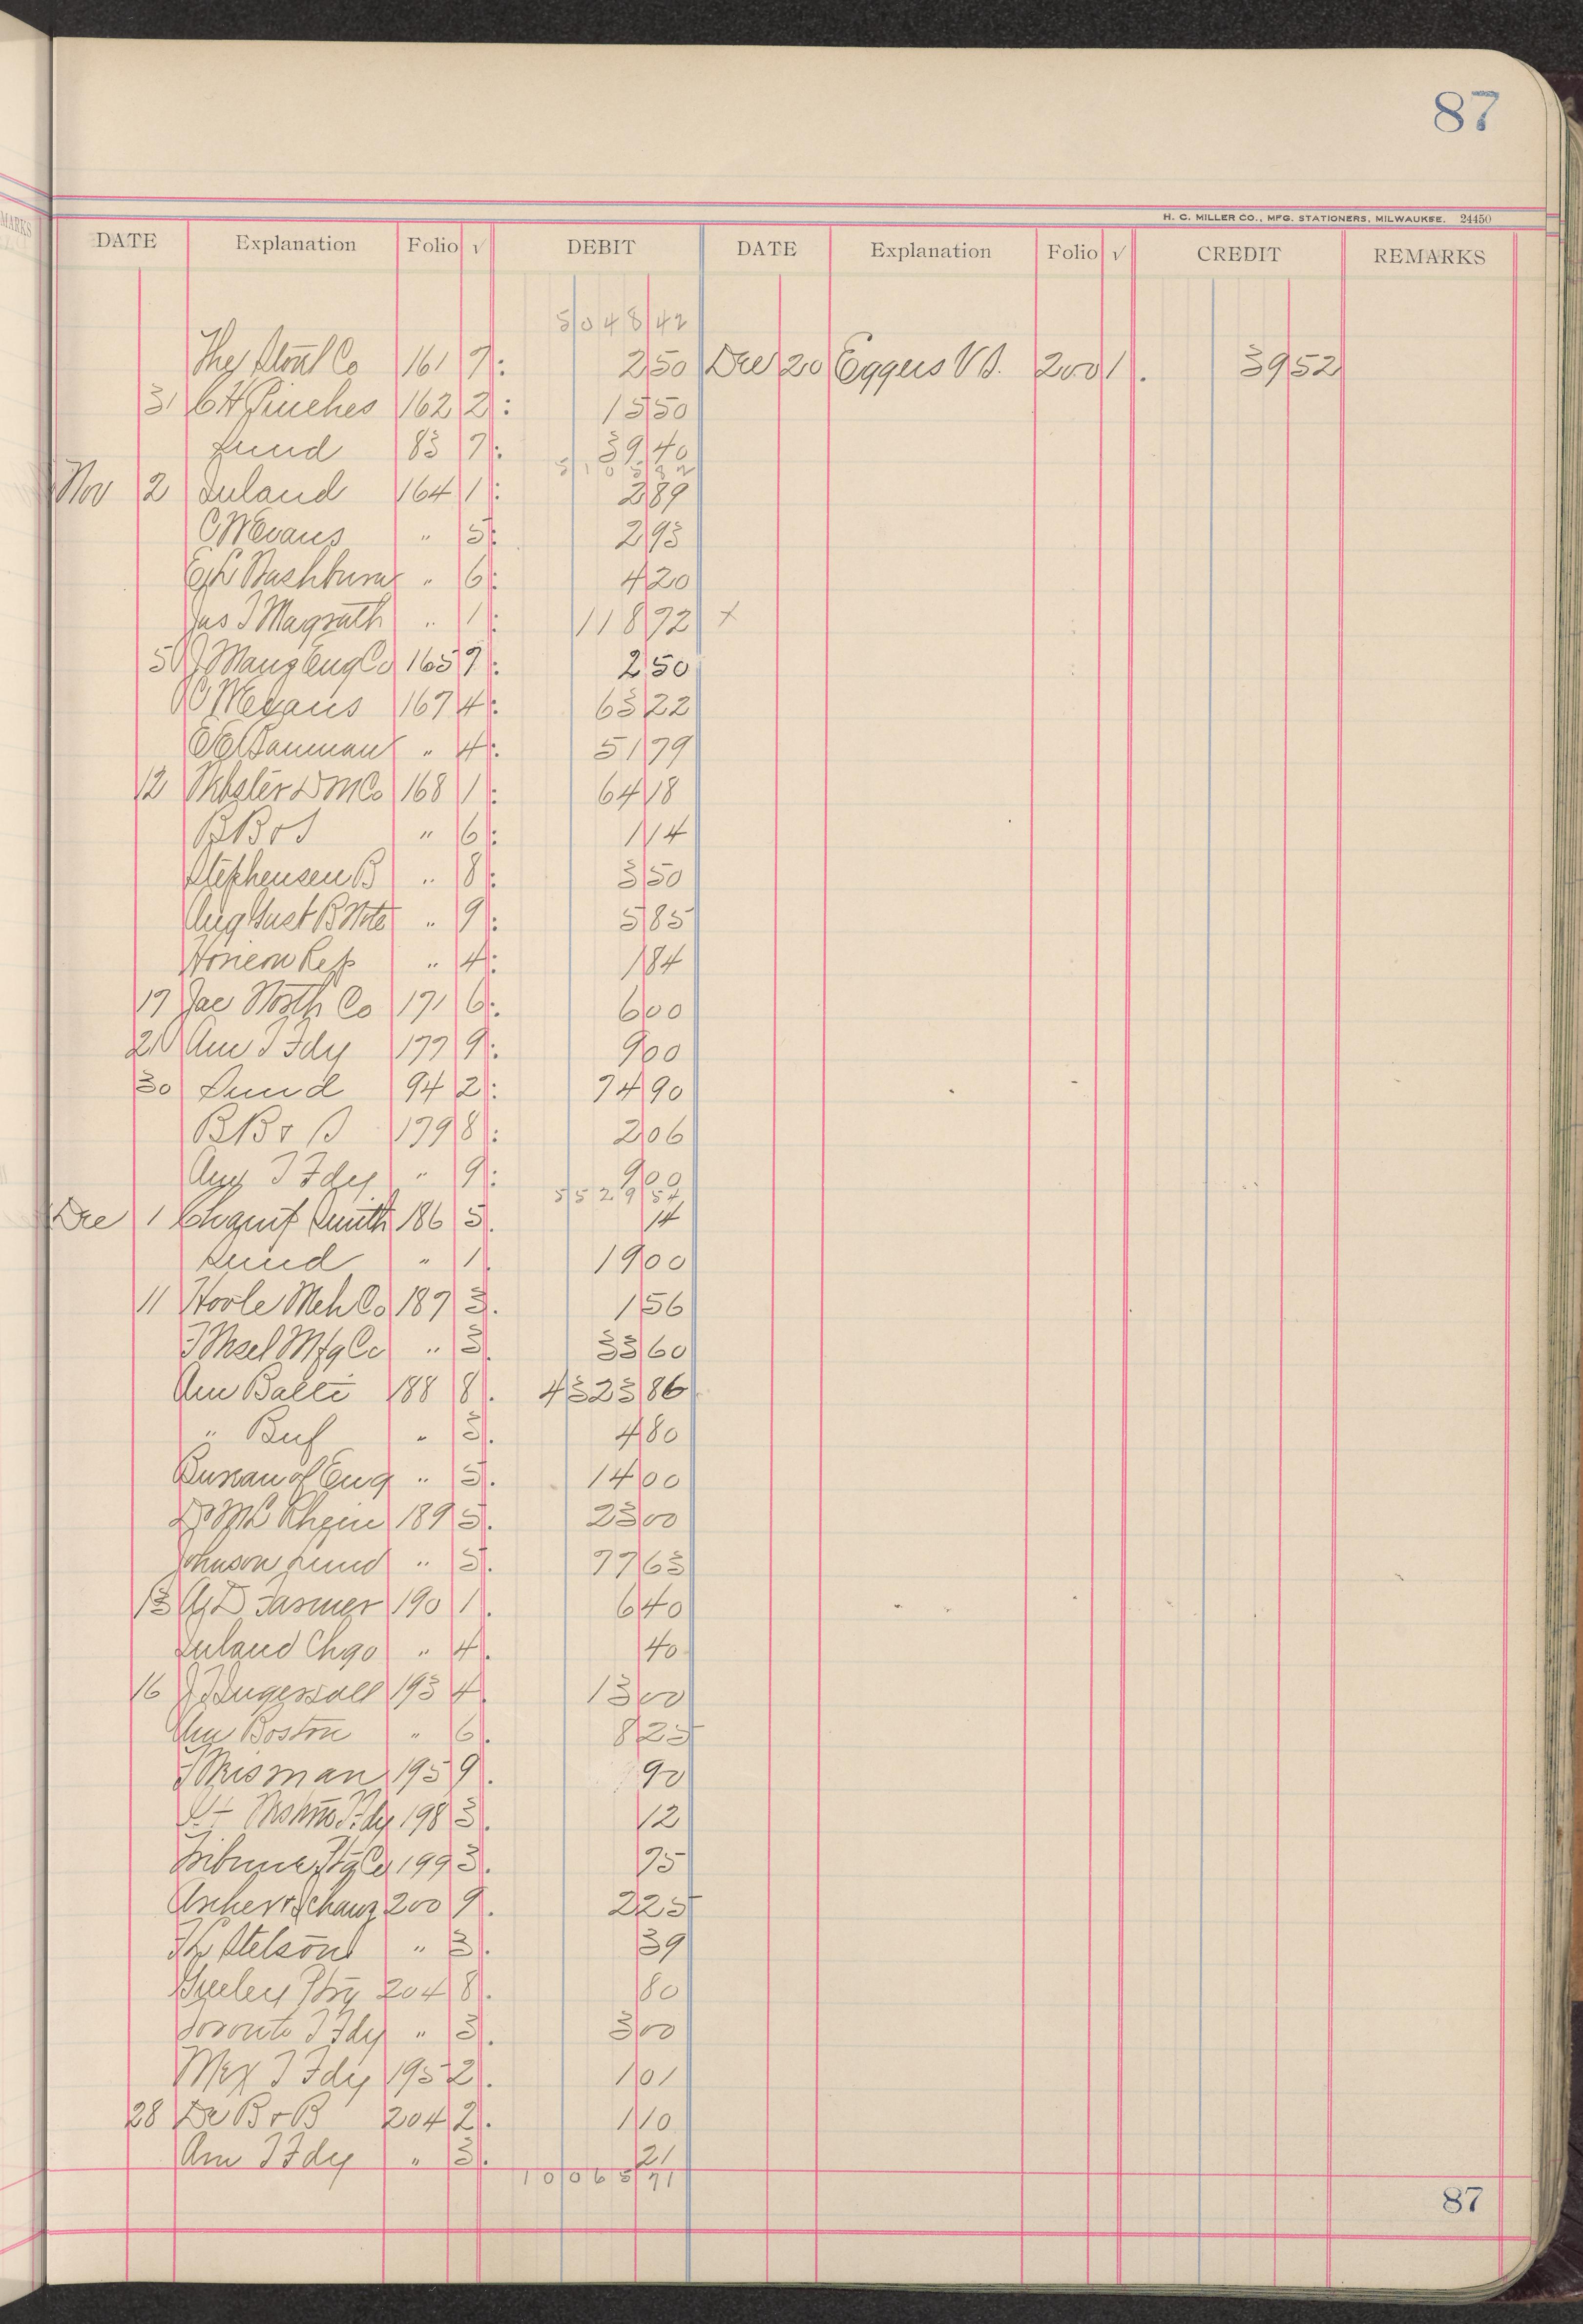 87
MARKS
H. C. MILLER CO., MFG. STATIONERS, MILWAUKEE. 24450
DATE Explanation Folio √ DEBIT DATE Explanation Folio √ CREDIT REMARKS
5048 42
The Co 161 7 2 50 Dec 20 Eggers V S. 200 1 39 52
31 C H Pinches 162 2 15 50
Sund 83 7 39 40
5105 82
Nov 2 Inland 164 1 2 89
C W Evans " 5 2 93
Washburn " 6 4 20
Jas J Magrath " 1 118 72 x
5 Mang Eng Co 165 7 2 50
C W Evans 167 4 63 22
Bauman " 4 51 79
12 Webster D M Co 168 1 64 18
B B & S " 6 1 14
Stephensen B " 8 3 50
August B " 9 5 85
Rep " 4 1 84
17 Jac North Co 171 6 6 00
21 Am T Fdy 177 9 9 00
30 Sund 94 2 74 90
B B & S 179 8 2 06
Am T Fdy " 9 9 00
5529 54
Dec 1 Smith 186 5 14
Sund " 1 19 00
11 Hoole Mch Co 187 3 1 56
F Wesel Mfg Co " 3 33 60
Am Balti 188 8 4323 86
" Buf " 3 4 80
Bureau of Eng " 5 14 00
Rhein 189 5 23 00
Johnson Sund " 5 77 63
13 A D Farmer 190 1 6 40
Inland Chgo " 4 40
16 Ingersoll 193 4 13 00
Am Boston " 6 8 25
195 9 90
Fdy 198 3 12
Tribune Ptg Co 199 3 75
Ascher & Schanz 200 9 2 25
Stetson " 3 39
204 8 80
Toronto T Fdy " 3 3 00
Mex T Fdy 195 2 1 01
28 B & B 204 2 1 10
Am T Fdy " 3 21
10065 71
87